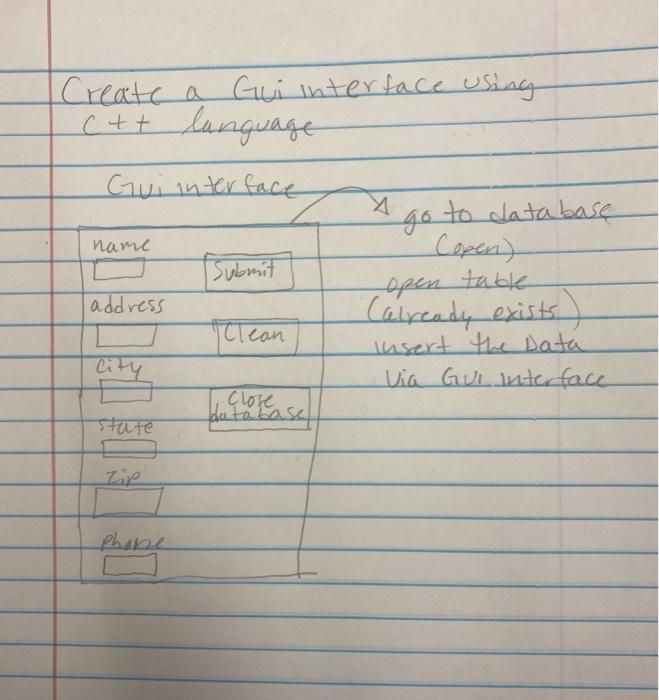 Create a Gui interface using
C++ language
Gui interface
name
Submit
address
Clean
City
Close
database
state
Zip
phone
go to database
(open)
open table
(already exists)
insert the Data
Via GUI interface